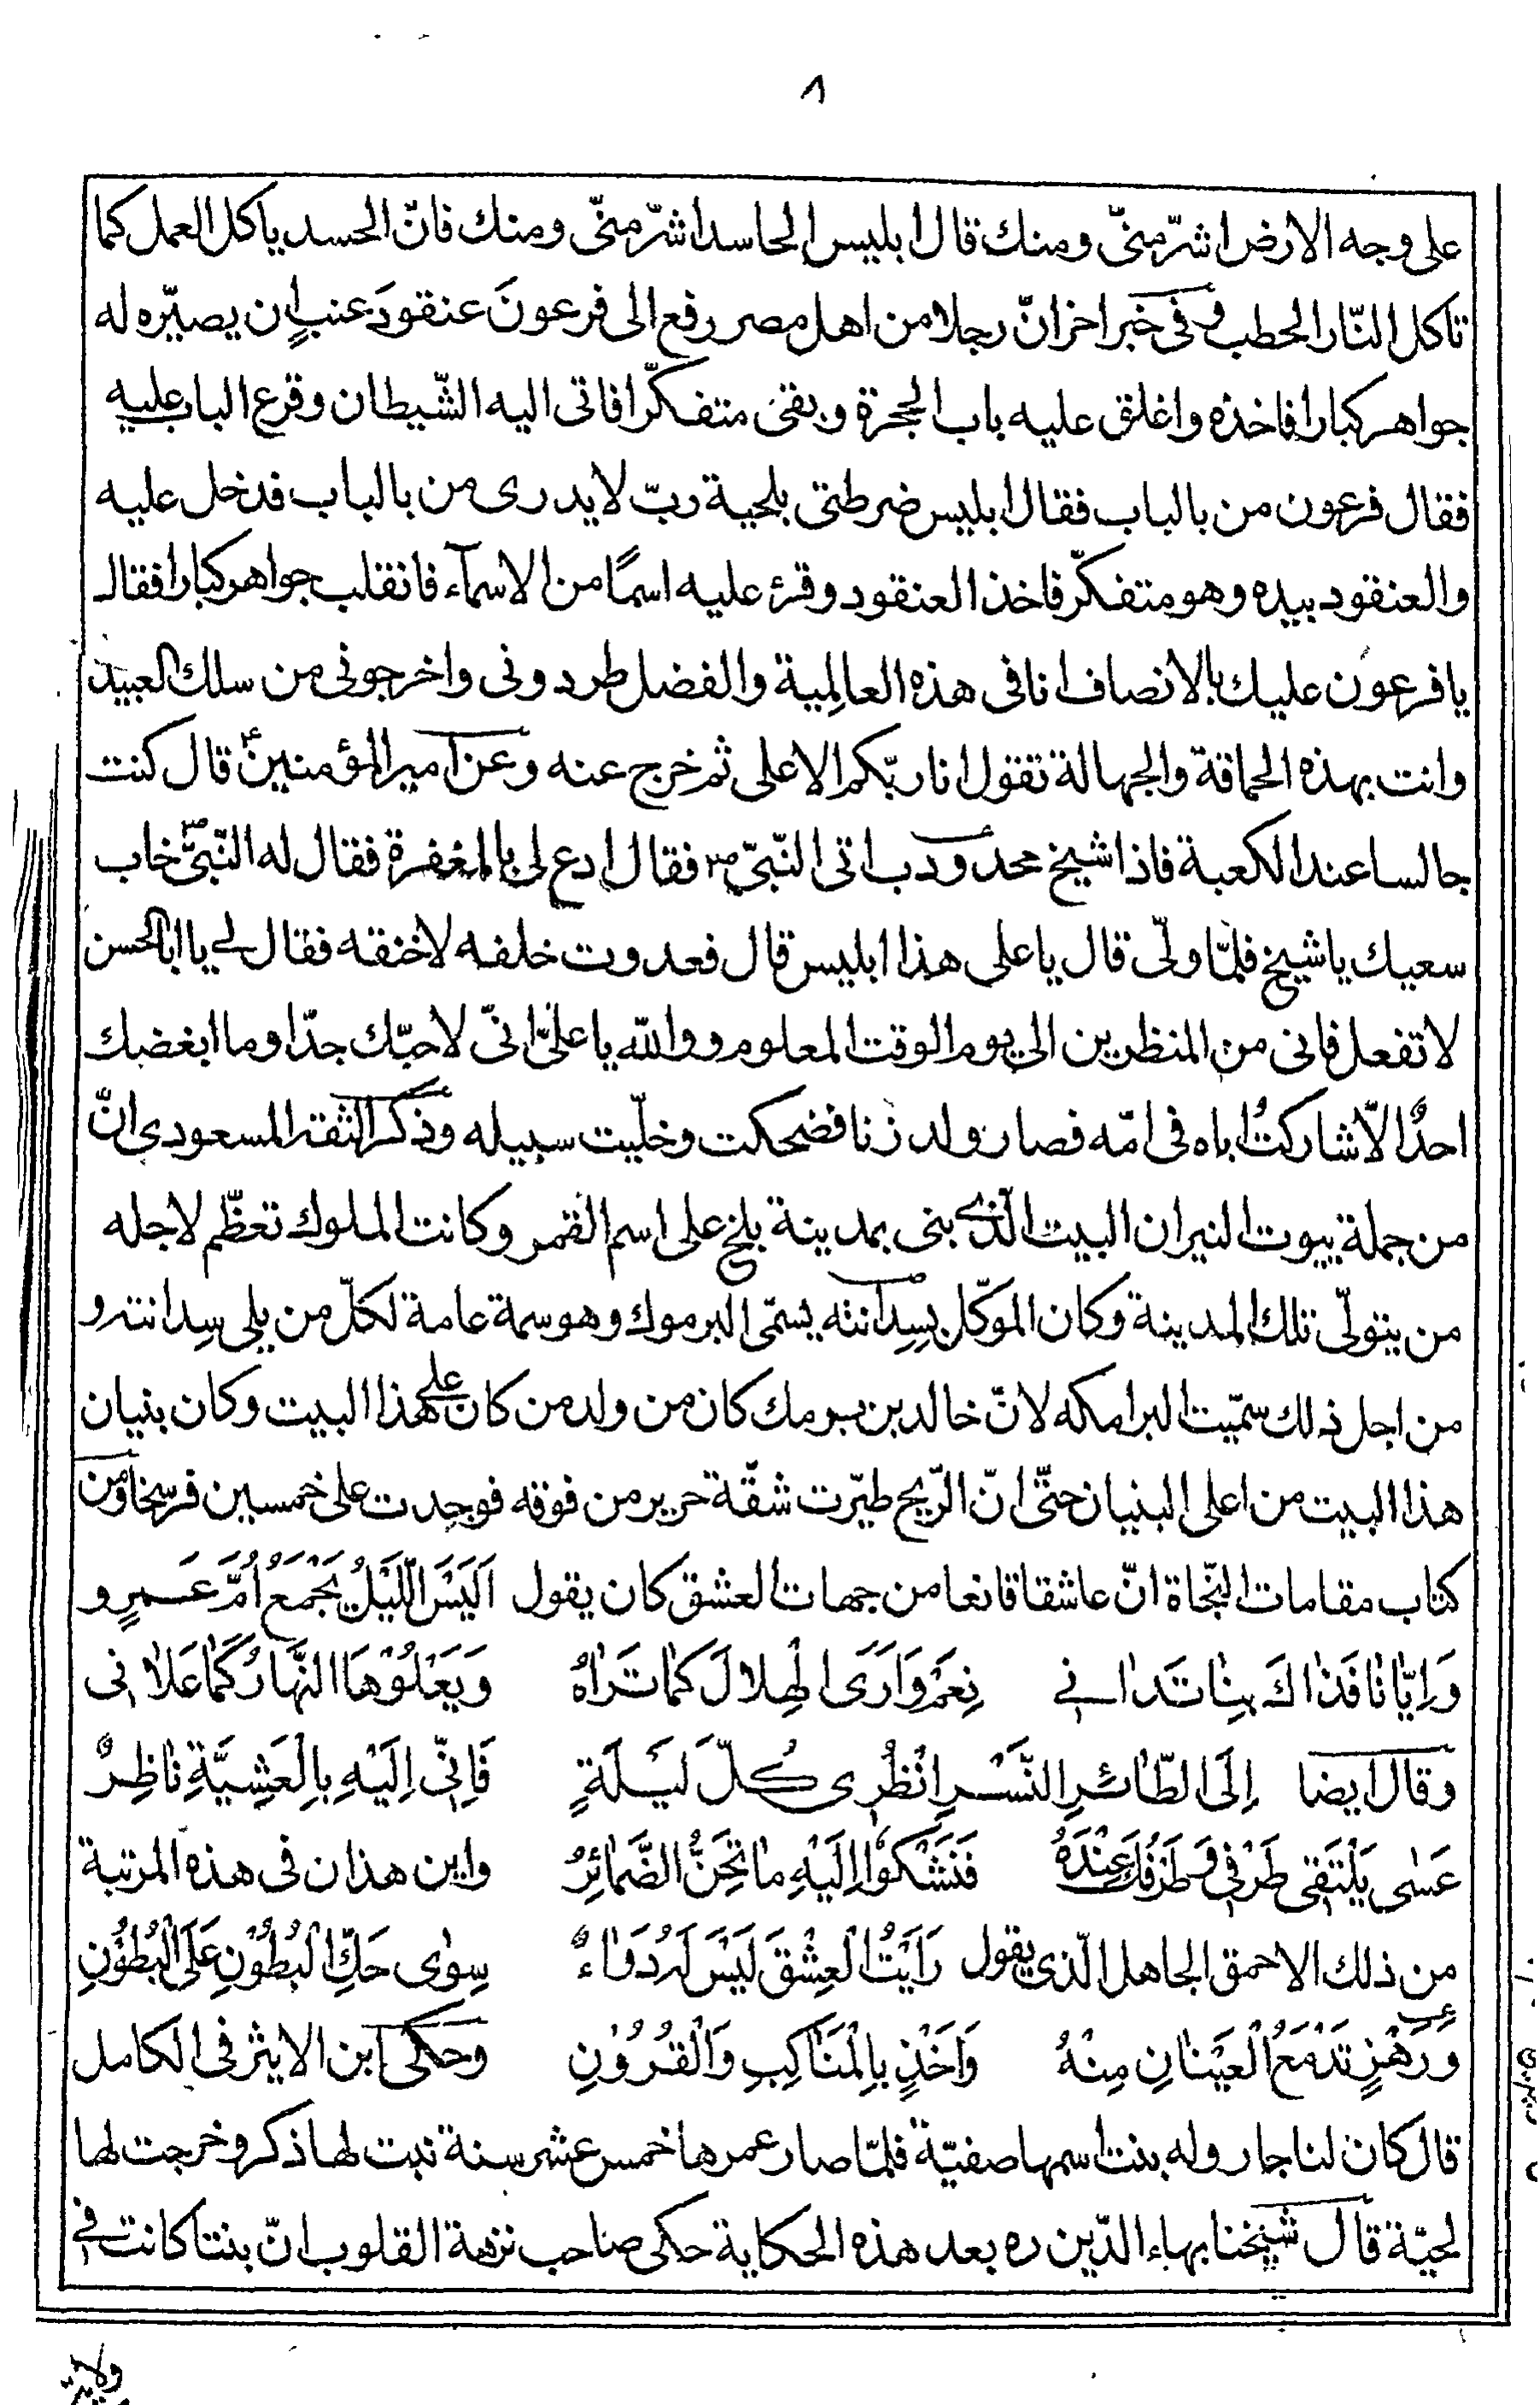 ٨
على وجه الارض اشرّ منّى ومنك قال ابليس الحاسد اشرّ منّى ومنك فانّ الحسد ياكل العمل كما
تاكل النّار الحطب وفى خبر اخر انّ رجلا من اهل مصر رفع الى فرعونَ عنقودَ عنبٍ ان يصيّره له
جواهر كبارا فاخذه واغلق عليه باب الحجرة وبقى متفكّرا فاتى اليه الشّيطان وقرع الباب عليه
فقال فرعون من بالباب فقال ابليس ضرطتى بلحية ربّ لا يدرى من بالباب فدخل عليه
والعنقود بيده وهو متفكّر فاخذ العنقود وقرئ عليه اسمًا من الاسمآء فانقلب جواهر كبارا فقال
يا فرعون عليك بالانصاف انا فى هذه العالِمية والفضل طردونى واخرجونى من سلك العبيد
وانت بهذه الحماقة والجهالة تقول انا ربّكم الاعلى ثم خرج عنه وعن امير المؤمنين ع قال كنت
جالسا عند الكعبة فاذا شيخ محدودب اتى النّبىّ ص فقال ادع لى بالمغفرة فقال له النّبىّ ص خاب
سعيك يا شيخ فلمّا ولّى قال يا على هذا ابليس قال فعدوت خلفه لاخنقه فقال لي يا ابا الحسن
لا تفعل فانى من المنظرين الى يوم الوقت المعلوم ووالله يا علىّ انّى لاحبّك جدّا وما ابغضك
احدٌ الّا شاركتُ اباه فى امّه فصار ولد زنا فضحكت وخلّيت سبيله وذكر الثقة المسعودى انّ
من جملة بيوت النيران البيت الّذي بنى بمدينة بلخ على اسم القمر وكانت الملوك تعظّم لاجله
من يتولّى تلك المدينة وكان الموكّل بسِدانته يسمّى البرموك وهو سمة عامة لكلّ من يلى سِدانته و
من اجل ذلك سمّيت البرامكه لانّ خالد بن برمك كان من ولد من كان على هذا البيت وكان بنيان
هذا البيت من اعلى البنيان حتّى انّ الرّيح طيّرت شقّة حرير من فوقه فوجدت على خمسين فرسخا ومن
كتاب مقامات النجّاة انّ عاشقا قانعا من جهات العشق كان يقول اَلَيْسَ اللّيَلُ يَجْمَعُ اُمَّ عَمرٍو
وَاِيّانا فَذاكَ بِنا تَدانِي نِعَمْ وَاَرَى الْهِلالَ كَما تَراهُ وَيَعْلُوْهَا النَّهارُ كَما عَلانى
وقال ايضا اِلَى الطّائرِ النَّسْرِ انْظُرِى كُلَّ لَيْلَةٍ فَاِنّى اِلَيْهِ بِالْعَشِيَّةِ ناظِرٌ
عَسٰى يَلْتَقِى طَرْفِى وَطَرْفُكِ عِنْدَهُ فَنَشْكُوا اِلَيْهِ ما تُجِنُّ الضَّمائِرُ واين هذان فى هذه المرتبة
من ذلك الاحمق الجاهل الّذى يقول رَاَيْتُ الْعِشْقَ لَيْسَ لَهُ دَواءٌ سِوٰى حَكِّ الْبُطُوْنِ عَلَى الْبُطُوْنِ
وَرَهْزٍ تَدْمَعُ الْعَيْنانِ مِنْهُ وَاَخْذٍ بِالْمَناكِبِ وَالْقُرُوْنِ وحكى ابن الاثير فى الكامل
قال كان لنا جار وله بنت اسمها صفيّة فلمّا صار عمرها خمس عشر سنة نبت لها ذكر وخرجت لها
لحيّة قال شيخنا بهاء الدّين ره بعد هذه الحكاية حكى صاحب نزهة القلوب انّ بنتا كانت في